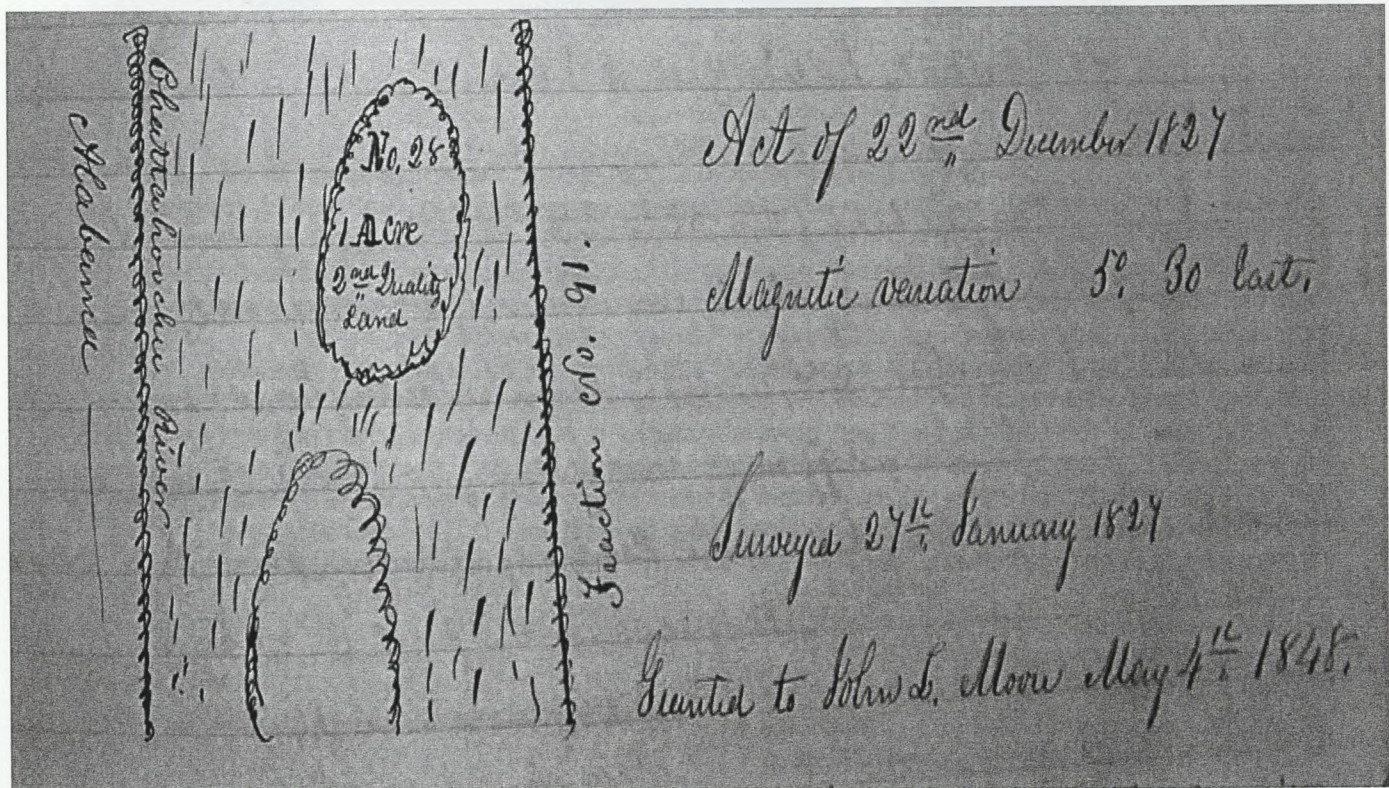 Alabama
Chattahoochee River
No. 28
1 Acre
2nd Quality
Land
Fraction No. 91.
Act of 22nd December 1827
Magnetic variation 5°. 30 East.
Surveyed 27th January 1827
Granted to John S. Moore May 4th 1848.